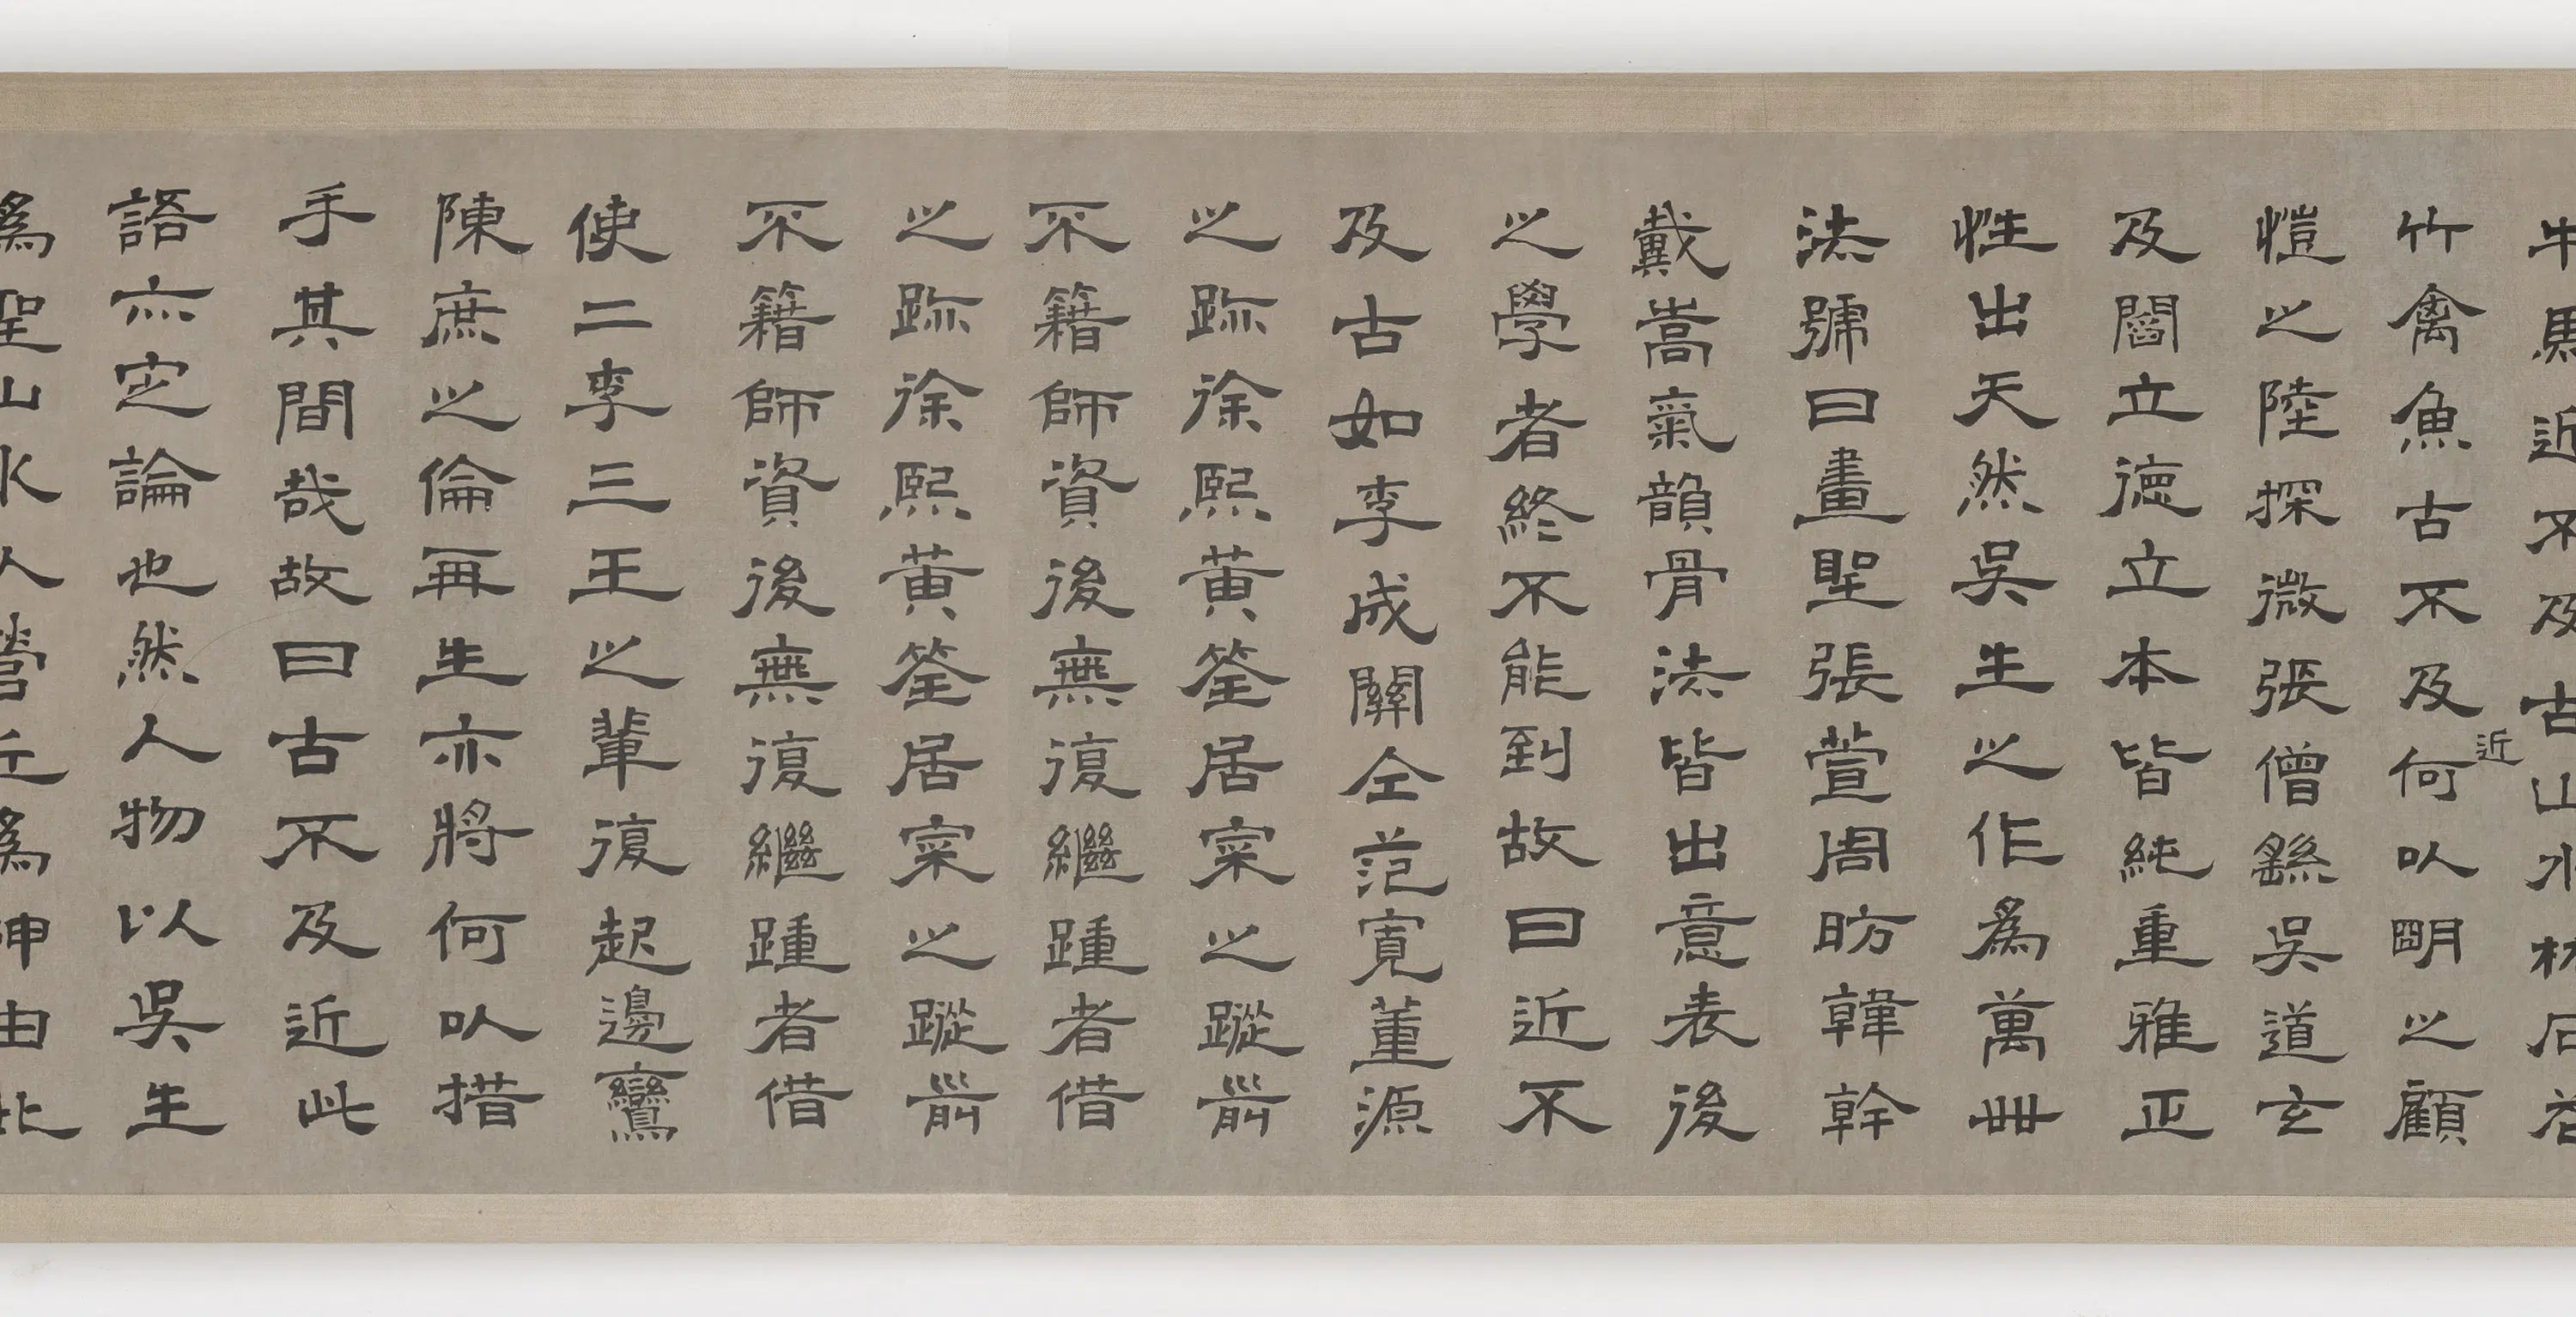 牛馬近不及古山水林石花
竹禽魚古不及近何以明之顧
愷之陸探微張僧繇吳道玄
及閻立德立本皆純重雅正
性出天然吳生之作為萬世
法號曰畫聖張萱周昉韓幹
戴嵩氣韻骨法皆出意表後
之學者終不能到故曰近不
及古如李成關仝范寬董源
之跡徐熙黃筌居寀之蹤前
不籍師資後無復繼踵者借
之跡徐熙黃筌居寀之蹤前
不籍師資後無復繼踵者借
使二李三王之輩復起邊鸞
陳庶之倫再生亦將何以措
手其間哉故曰古不及近此
語亦定論也然人物以吳生
為聖山水以營丘為神由此